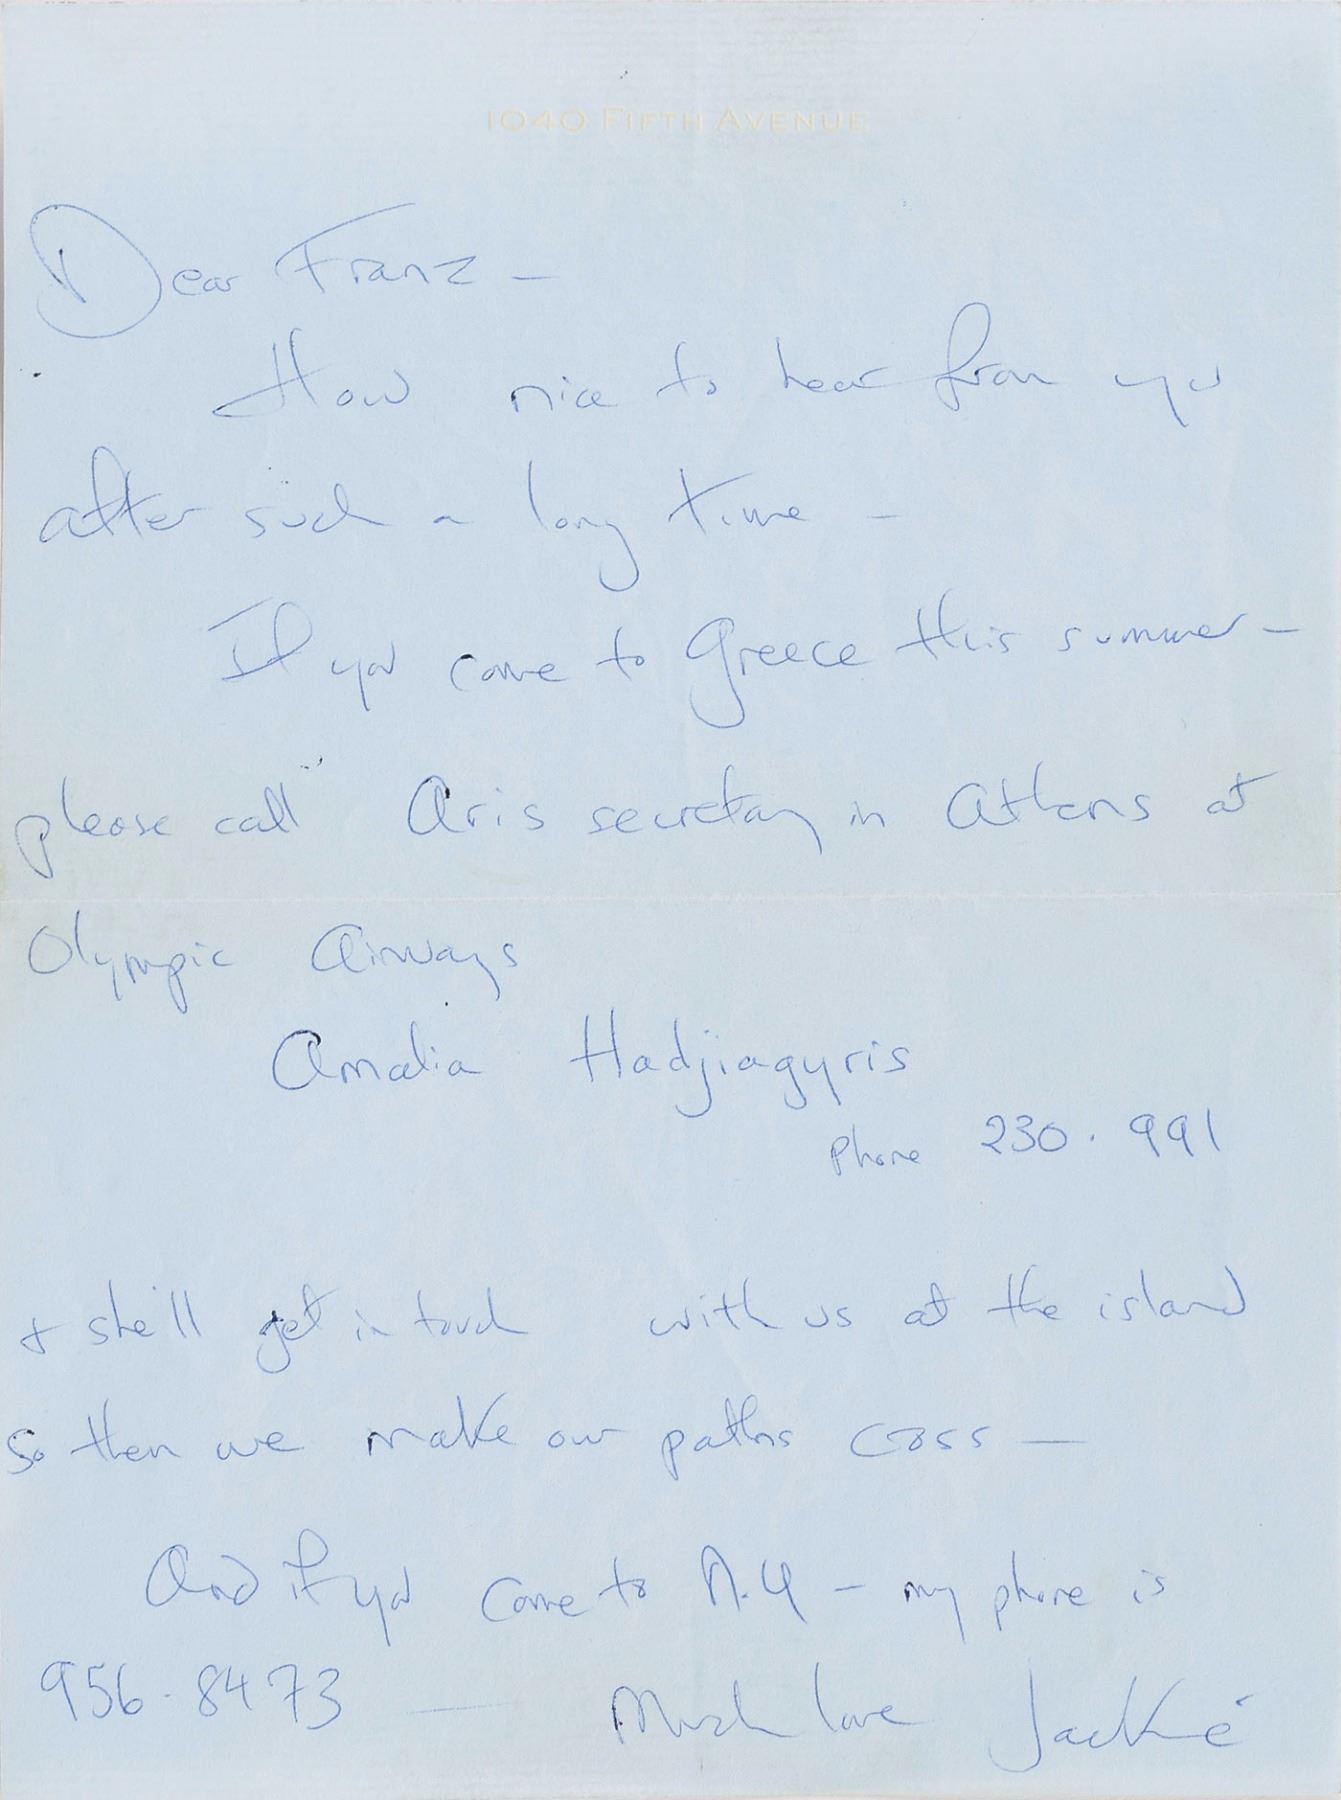 1040 FIFTH AVENUE
Dear Franz —
How nice to hear from you
after such a long time —
If you come to Greece this summer —
please call Aris secretary in Athens at
Olympic Airways
Amalia Hadjiagyris
phone 230.991
+ she'll get in touch with us at the island
so then we make our paths cross —
And if you come to N.Y — my phone is
956.8473 — Much love Jackie